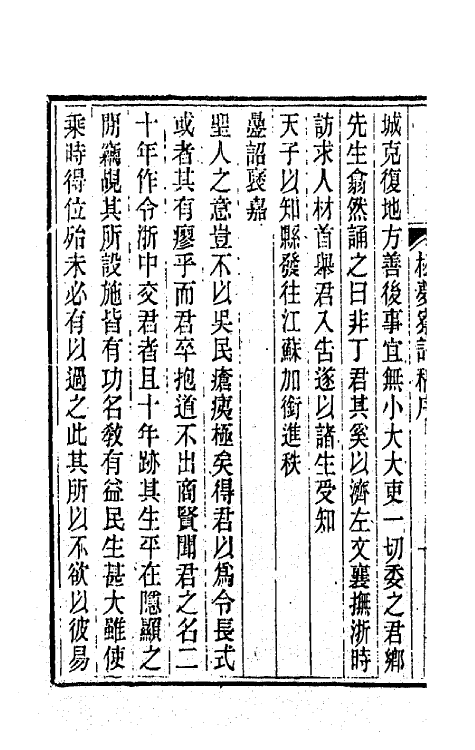 城克復地方善後事宜無小大大吏一切委之君鄉
先生翕然誦之曰非丁君其奚以濟左文襄撫浙時
訪求人材首舉君入告遂以諸生受知
天子以知縣發往江蘇加銜進秩
疊詔褒嘉
聖人之意豈不以吳民瘡痍極矣得君以爲令長式
或者其有瘳乎而君卒抱道不出商賢聞君之名二
十年作令浙中交君者且十年跡其生平在隱顯之
閒竊覘其所設施皆有功名敎有益民生甚大雖使
乘時得位殆未必有以過之此其所以不欲以彼易